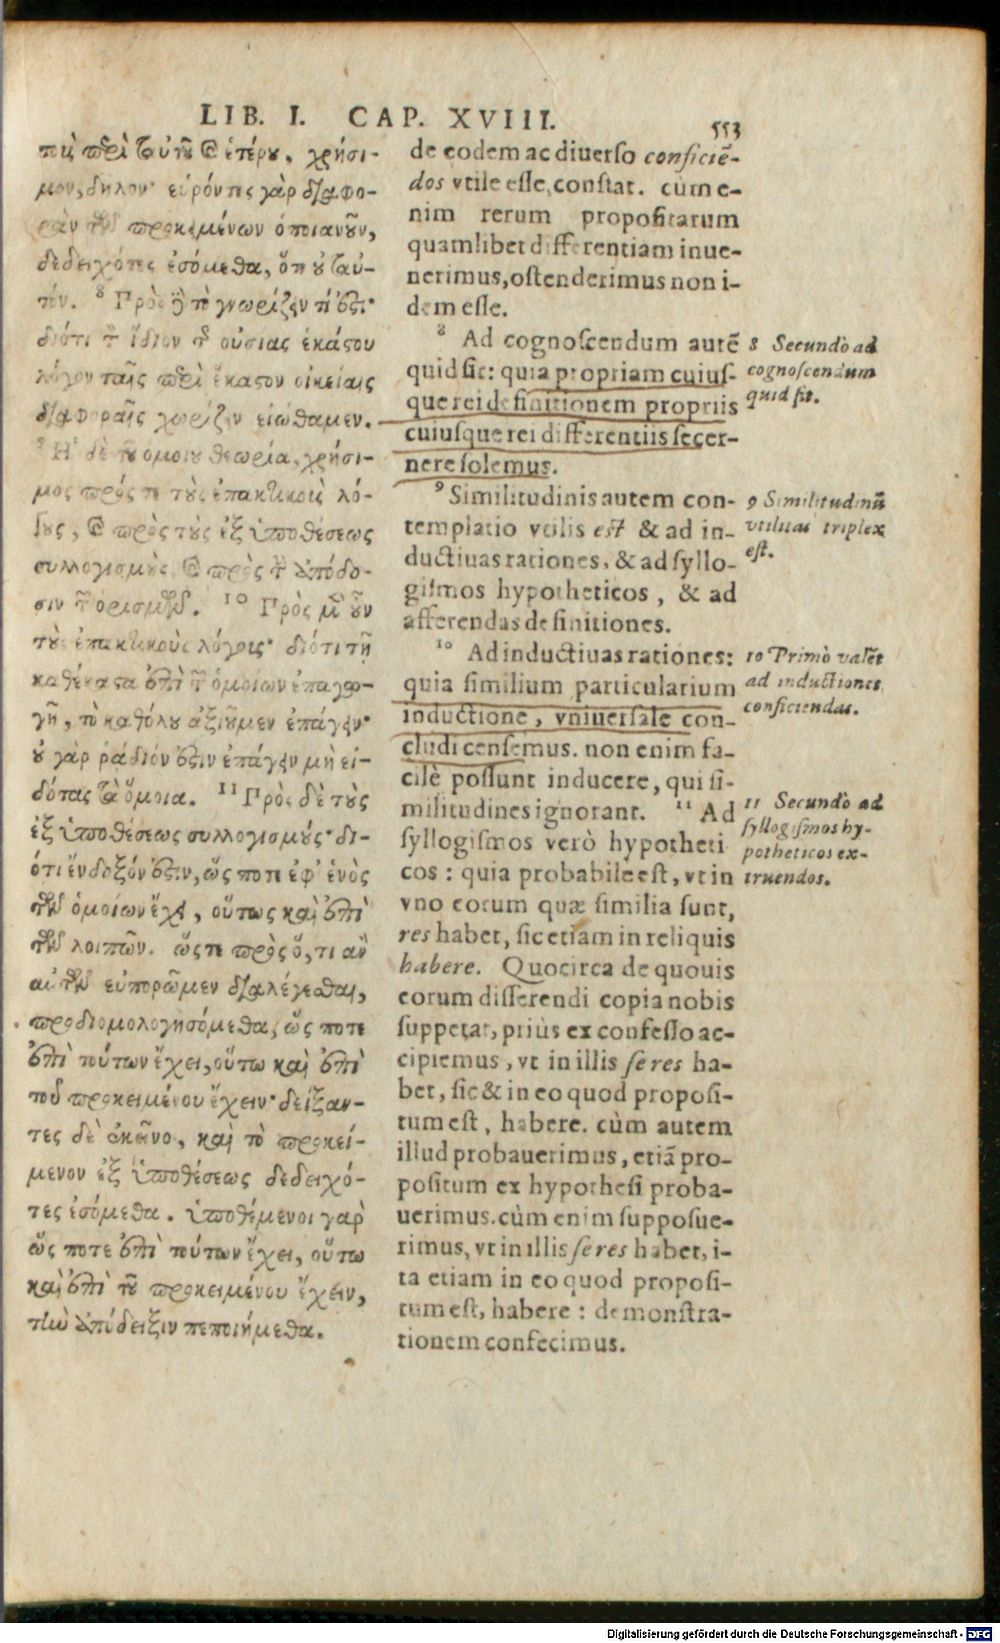 LIB. I. CAP. XVIII.
553
τὺς περὶ ταὐτοῦ καὶ ἑτέρου, χρήσι-
μον, δῆλον· εὑρόντες γὰρ διαφο-
ρὰν τῶν προκειμένων ὁποιανοῦν,
δεδειχότες ἐσόμεθα, ὅτι οὐ ταὐ-
τόν. 8 Πρὸς δὲ τὸ γνωρίζειν τί ἐστι·
διότι τὸν ἴδιον τῆς οὐσίας ἑκάστου
λόγον ταῖς περὶ ἕκαστον οἰκείαις
διαφοραῖς χωρίζειν εἰώθαμεν.
9 Ἡ δὲ τοῦ ὁμοίου θεωρία, χρήσι-
μος πρός τε τοὺς ἐπακτικοὺς λό-
γους, καὶ πρὸς τοὺς ἐξ ὑποθέσεως
συλλογισμοὺς, καὶ πρὸς τὴν ἀπόδο-
σιν τῶν ὁρισμῶν. 10 Πρὸς μὲν οὖν
τοὺς ἐπακτικοὺς λόγους· διότι τῇ
καθέκαστα ἐπὶ τῶν ὁμοίων ἐπαγω-
γῇ, τὸ καθόλου ἀξιοῦμεν ἐπάγειν·
οὐ γὰρ ῥᾴδιόν ἐστιν ἐπάγειν μὴ εἰ-
δότας τὰ ὅμοια. 11 Πρὸς δὲ τοὺς
ἐξ ὑποθέσεως συλλογισμούς· δι-
ότι ἔνδοξόν ἐστιν, ὥς ποτε ἐφ' ἑνὸς
τῶν ὁμοίων ἔχει, οὕτως καὶ ἐπὶ
τῶν λοιπῶν. ὥστε πρὸς ὅ,τι ἂν
αὐτῶν εὐπορῶμεν διαλέγεσθαι,
προδιομολογησόμεθα, ὥς ποτε
ἐπὶ τούτων ἔχει, οὕτω καὶ ἐπὶ
τοῦ προκειμένου ἔχειν· δείξαν-
τες δὲ ἐκεῖνο, καὶ τὸ προκεί-
μενον ἐξ ὑποθέσεως δεδειχό-
τες ἐσόμεθα. ὑποθέμενοι γὰρ
ὥς ποτε ἐπὶ τούτων ἔχει, οὕτω
καὶ ἐπὶ τοῦ προκειμένου ἔχειν,
τὴν ἀπόδειξιν πεποιήμεθα.
de eodem ac diuerso conficiē-
dos vtile esse, constat. cùm e-
nim rerum propositarum
quamlibet differentiam inue-
nerimus, ostenderimus non i-
dem esse.
8 Ad cognoscendum autē
quid sit: quia propriam cuius-
que rei definitionem propriis
cuiusque rei differentiis secer-
nere solemus.
9 Similitudinis autem con-
templatio vtilis est & ad in-
ductiuas rationes, & ad syllo-
gismos hypotheticos, & ad
afferendas definitiones.
10 Ad inductiuas rationes:
quia similium particularium
inductione, vniuersale con-
cludi censemus. non enim fa-
cilè possunt inducere, qui si-
militudines ignorant. 11 Ad
syllogismos verò hypotheti
cos: quia probabile est, vt in
vno eorum quæ similia sunt,
res habet, sic etiam in reliquis
habere. Quocirca de quouis
eorum disserendi copia nobis
suppetat, priùs ex confesso ac-
cipiemus, vt in illis se res ha-
bet, sic & in eo quod proposi-
tum est, habere. cùm autem
illud probauerimus, etiā pro-
positum ex hypothesi proba-
uerimus. cùm enim supposue-
rimus, vt in illis se res habet, i-
ta etiam in eo quod proposi-
tum est, habere: demonstra-
tionem confecimus.
8 Secundò ad
cognoscendum
quid sit.
9 Similitudinū
vtilitas triplex
est.
10 Primò valēt
ad inductiones
conficiendas.
11 Secundò ad
syllogismos hy-
potheticos ex-
truendos.
Digitalisierung gefördert durch die Deutsche Forschungsgemeinschaft - DFG